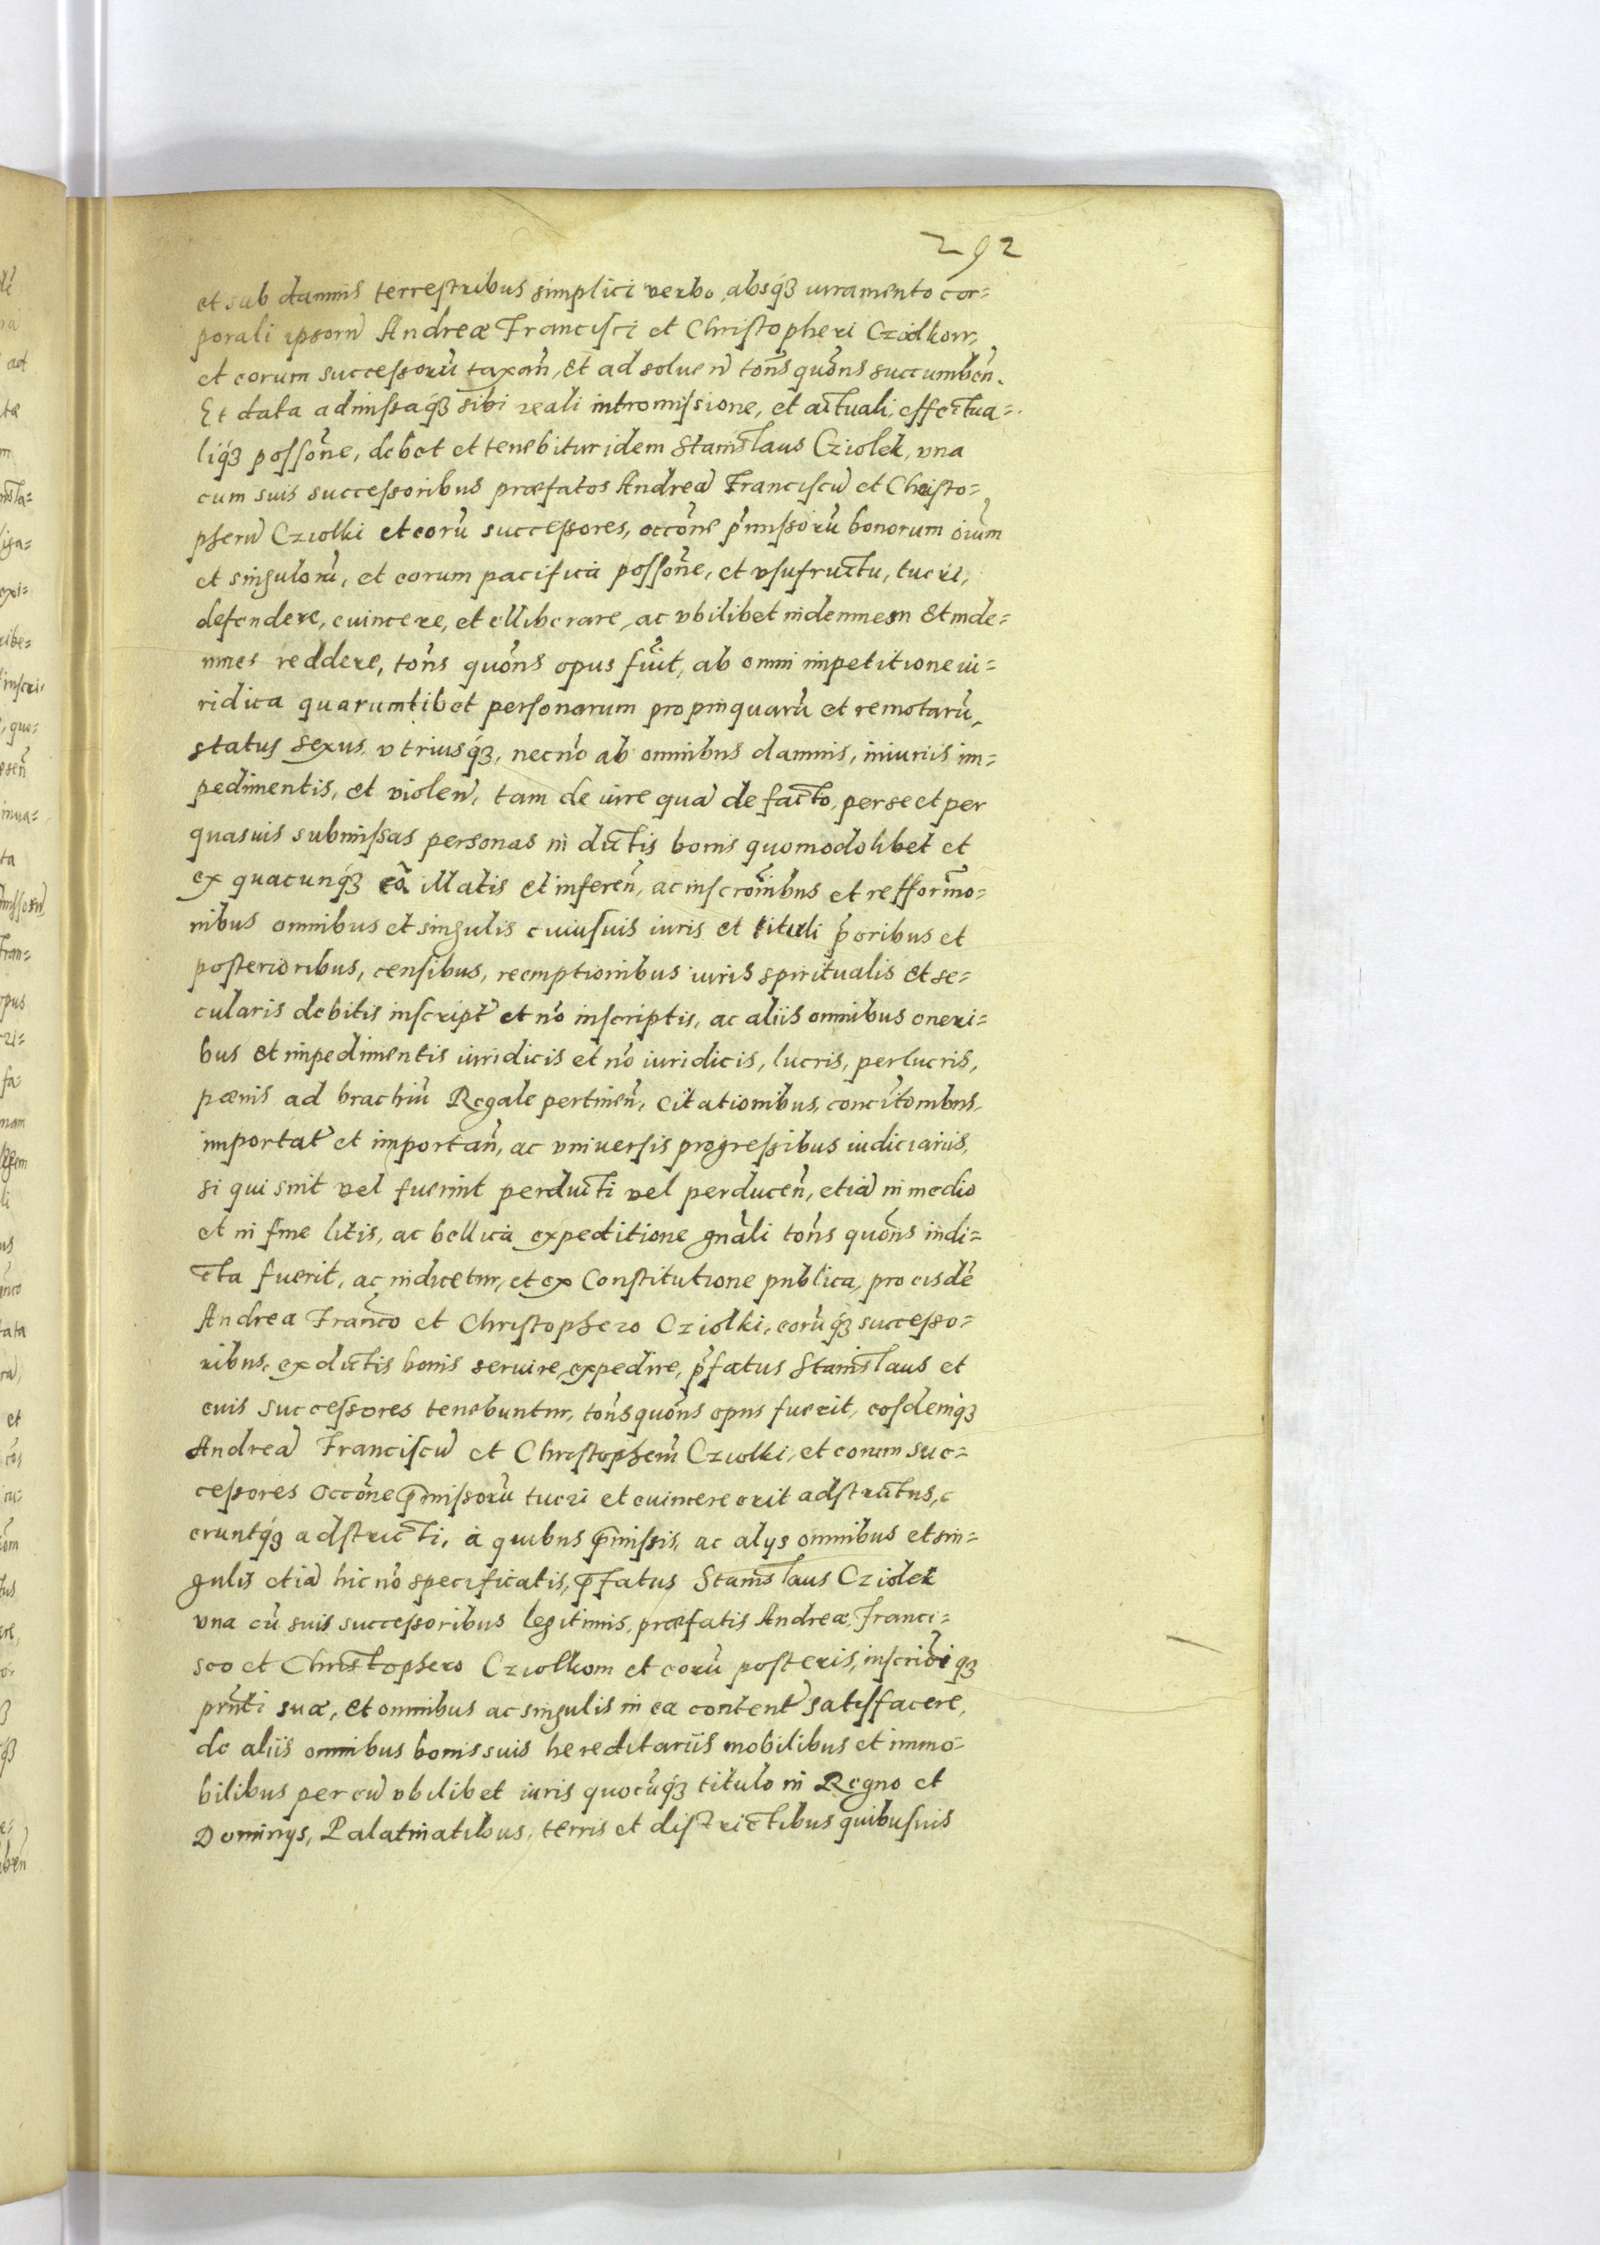 292
et sub damnis terrestribus simplici verbo, absq́ꝫ iuramento cor=
porali ipsorũ Andreæ Francisci et Christopheri Cziolkow,
et eorum successorũ taxañ, et ad soluen̄ tõns quõns succumbeñ.
Et data admissaq́ꝫ sibi reali intromissione, et actuali, effectua=
liq́ꝫ possõne, debet et tenebitur idem Stanislaus Cziolek, vna
cum suis successoribus præfatos Andreã Franciscũ et Christo=
pherũ Cziolki et eorũ successores, occõne p̃missorũ bonorum oĩum
et singulorũ, et eorum pacifica possõne, et vsufructu, tueri,
defendere, euincere, et elliberare, ac vbilibet indemnem et inde=
mnes reddere, tõns quõns opus fũit, ab omni impetitione iu=
ridica quarumlibet personarum propinquarũ et remotarũ,
status sexus vtriusq́ꝫ, necnõ ab omnibus damnis, iniuriis im=
pedimentis, et violeñ, tam de iure quã de facto, per se et per
quasuis submissas personas in dictis bonis quomodolibet et
ex quacunq́ꝫ cã illatis et inferen̄, ac inscrõnibus et refformõ=
nibus omnibus et singulis cuiusuis iuris et tituli p̃oribus et
posterioribus, censibus, reemptionibus iuris spiritualis et se=
cularis debitis inscript̃ et nõ inscriptis, ac aliis omnibus oneri=
bus et impedimentis iuridicis et nõ iuridicis, lucris, perlucris,
pœnis ad brachiũ Regale pertineñ, citationibus, concitõnibus,
importat̃ et importañ, ac vniuersis progressibus iudiciariis,
si qui sint vel fuerint perducti vel perduceñ, etiã in medio
et in fine litis, ac bellica expeditione gnãli tõns quõns indi=
cta fuerit, ac indicetur, et ex Constitutione publica, pro eisdẽ
Andrea Franc̃o et Christophero Cziolki, eorũq́ꝫ successo=
ribus, ex dictis bonis seruire, expedire, p̃fatus Stanislaus et
euis successores tenebuntur, tõns quõns opus fuerit, eosdemq́ꝫ
Andreã Franciscũ et Christopherũ Cziolki, et eorum suc=
cessores occõne p̃missorũ tueri et euincere erit adstrictus,
eruntq́ꝫ adstricti, à quibus p̃missis, ac alys omnibus et sin=
gulis etiã hic nõ specificatis, p̃fatus Stanislaus Cziolek
vna cũ suis successoribus legitimis, præfatis Andreæ, Franci=
sco et Christophero Cziolkom et eorũ posteris, inscriõniq́ꝫ
prñti suæ, et omnibus ac singulis in ea content̃ satisfacere,
de aliis omnibus bonis suis hereditariis mobilibus et immo=
bilibus per eũ vbilibet iuris quocũq́ꝫ titulo in Regno et
Dominys, Palatinatibus, terris et districtibus quibusuis